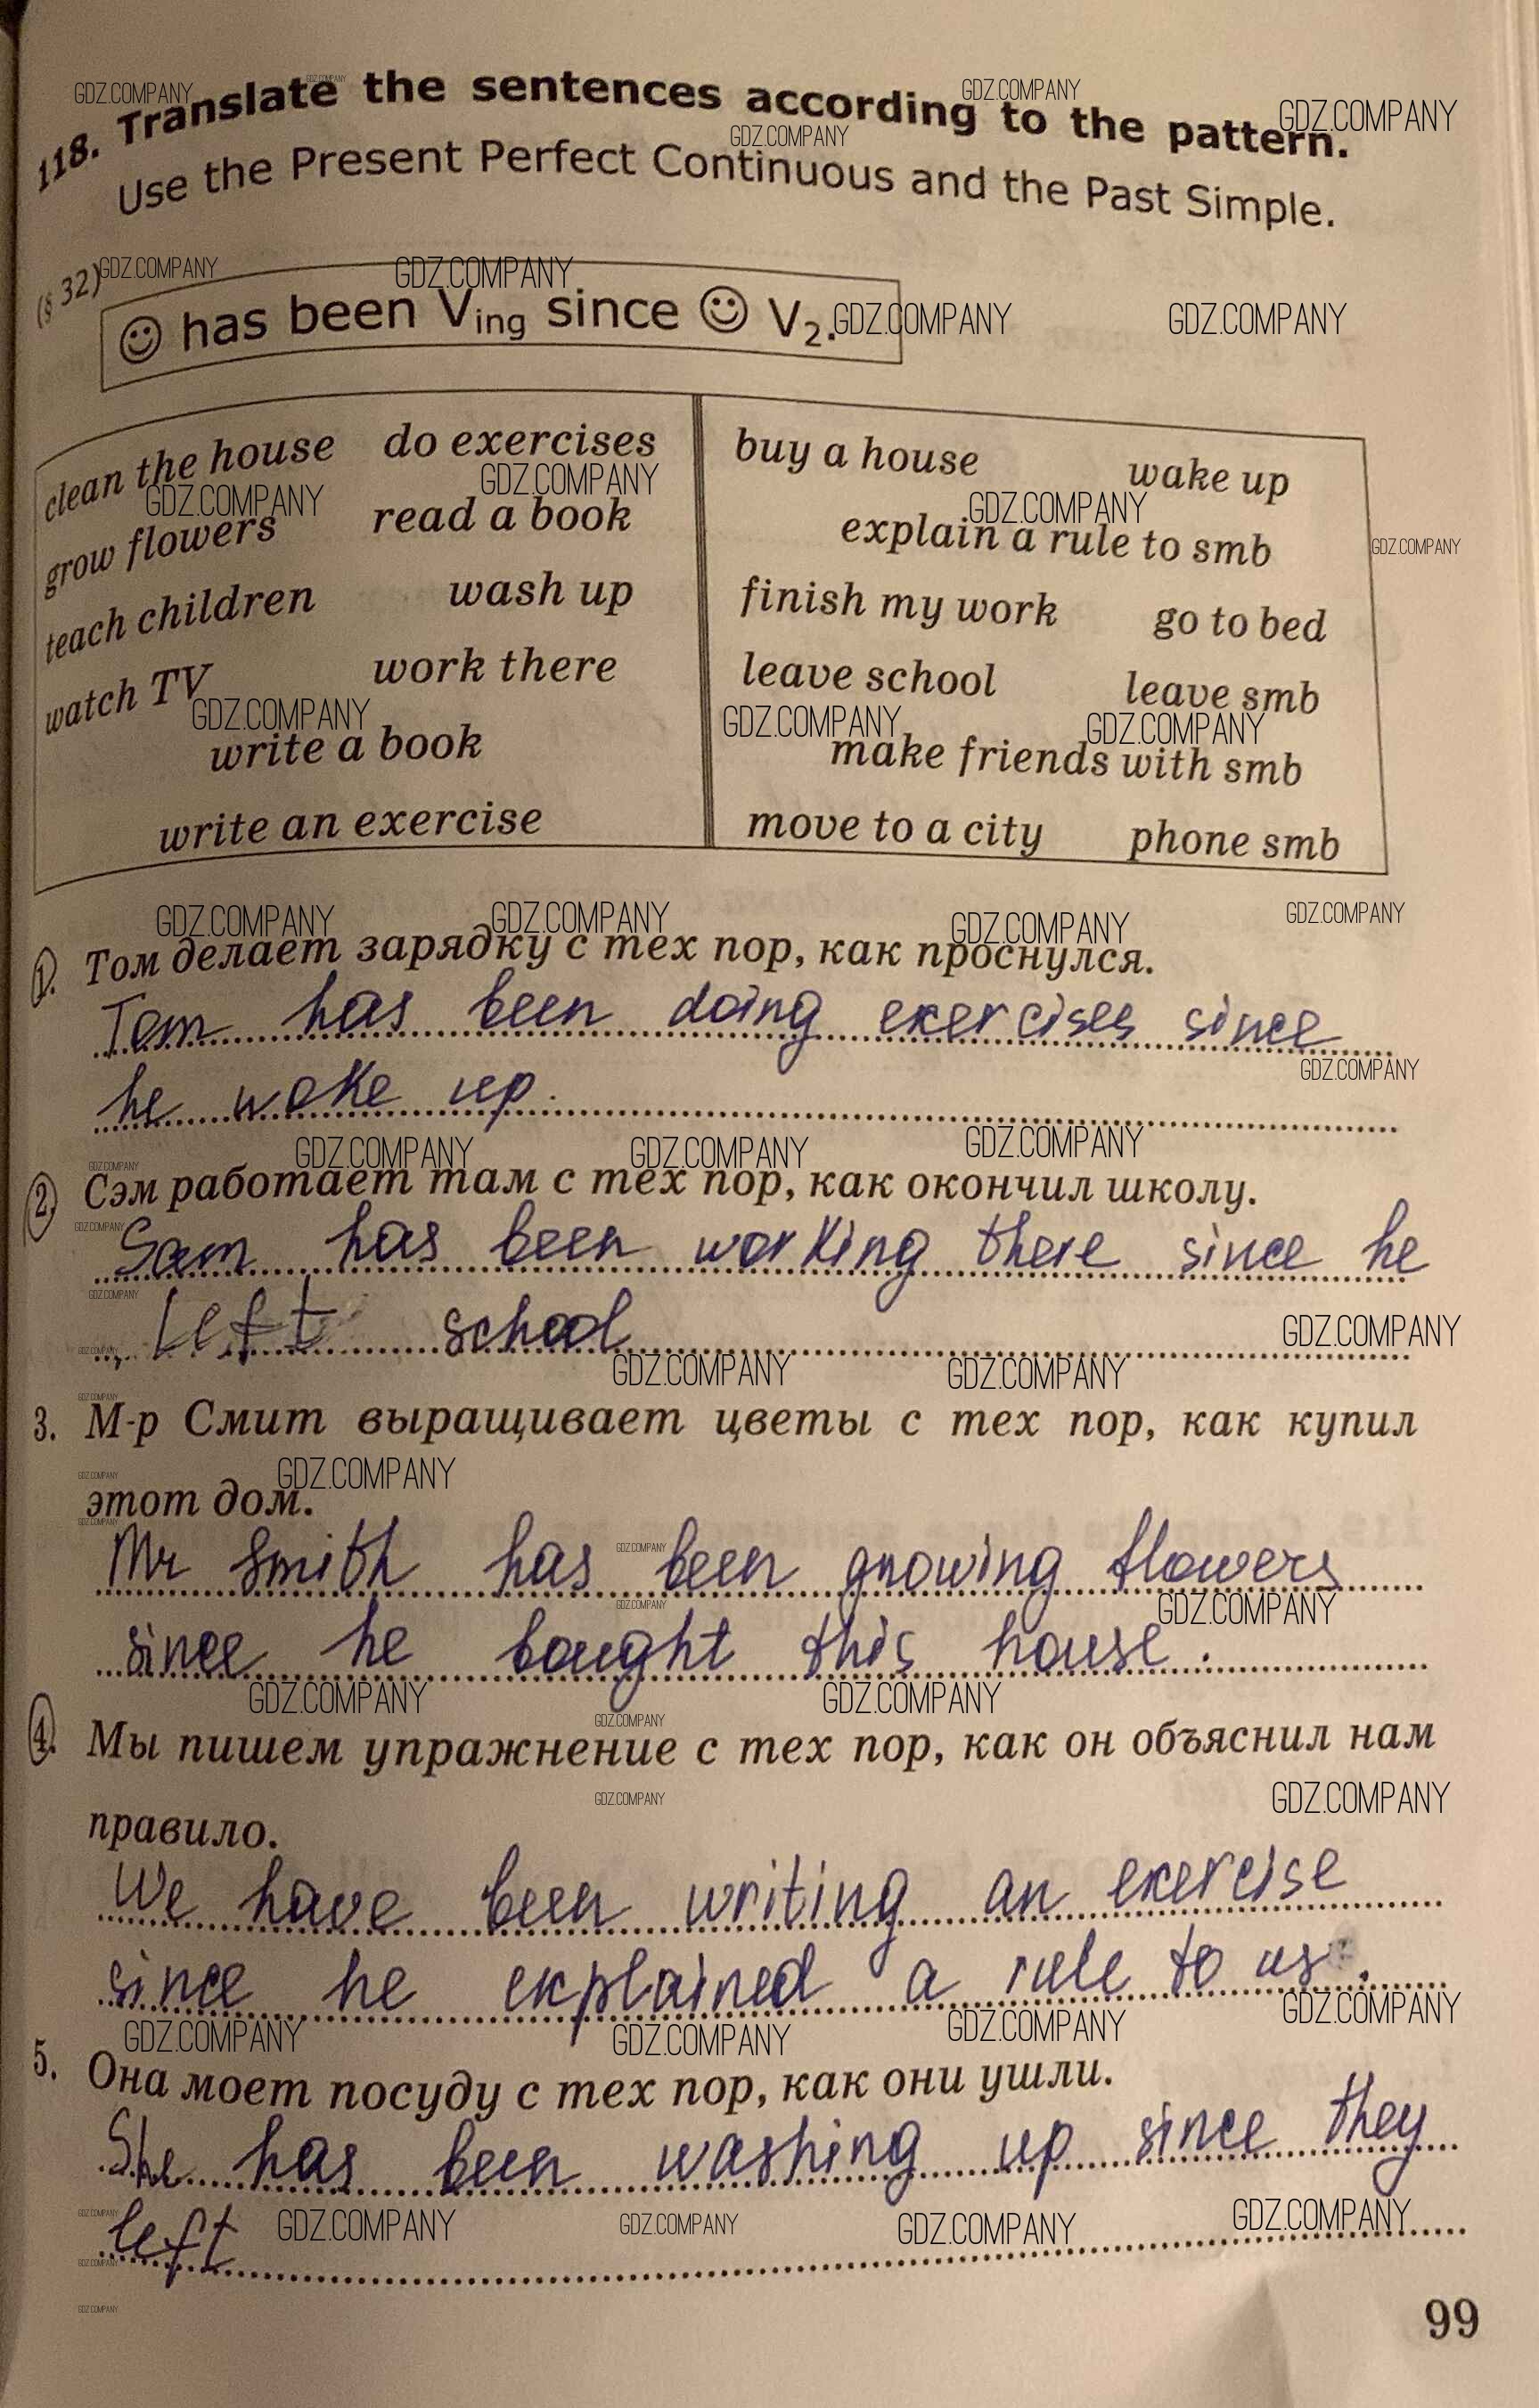 118. Translate the sentences according to the pattern.
Use the Present Perfect Continuous and the Past Simple.
(§ 32)
☺ has been Ving since ☺ V2.
clean the house do exercises
grow flowers read a book
teach children wash up
watch TV work there
write a book
write an exercise
buy a house wake up
explain a rule to smb
finish my work go to bed
leave school leave smb
make friends with smb
move to a city phone smb
1. Том делает зарядку с тех пор, как проснулся.
Tom has been doing exercises since
he woke up.
2. Сэм работает там с тех пор, как окончил школу.
Sam has been working there since he
left school
3. М-р Смит выращивает цветы с тех пор, как купил
этот дом.
Mr Smith has been growing flowers
since he bought this house.
4. Мы пишем упражнение с тех пор, как он объяснил нам
правило.
We have been writing an exercise
since he explained a rule to us.
5. Она моет посуду с тех пор, как они ушли.
She has been washing up since they
left
99
GDZ.COMPANY